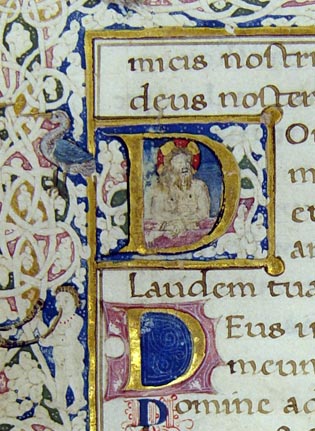 micis nostri
deus noster
DO
m
et
an
Laudem tua
DEus in
meum
Domine ad